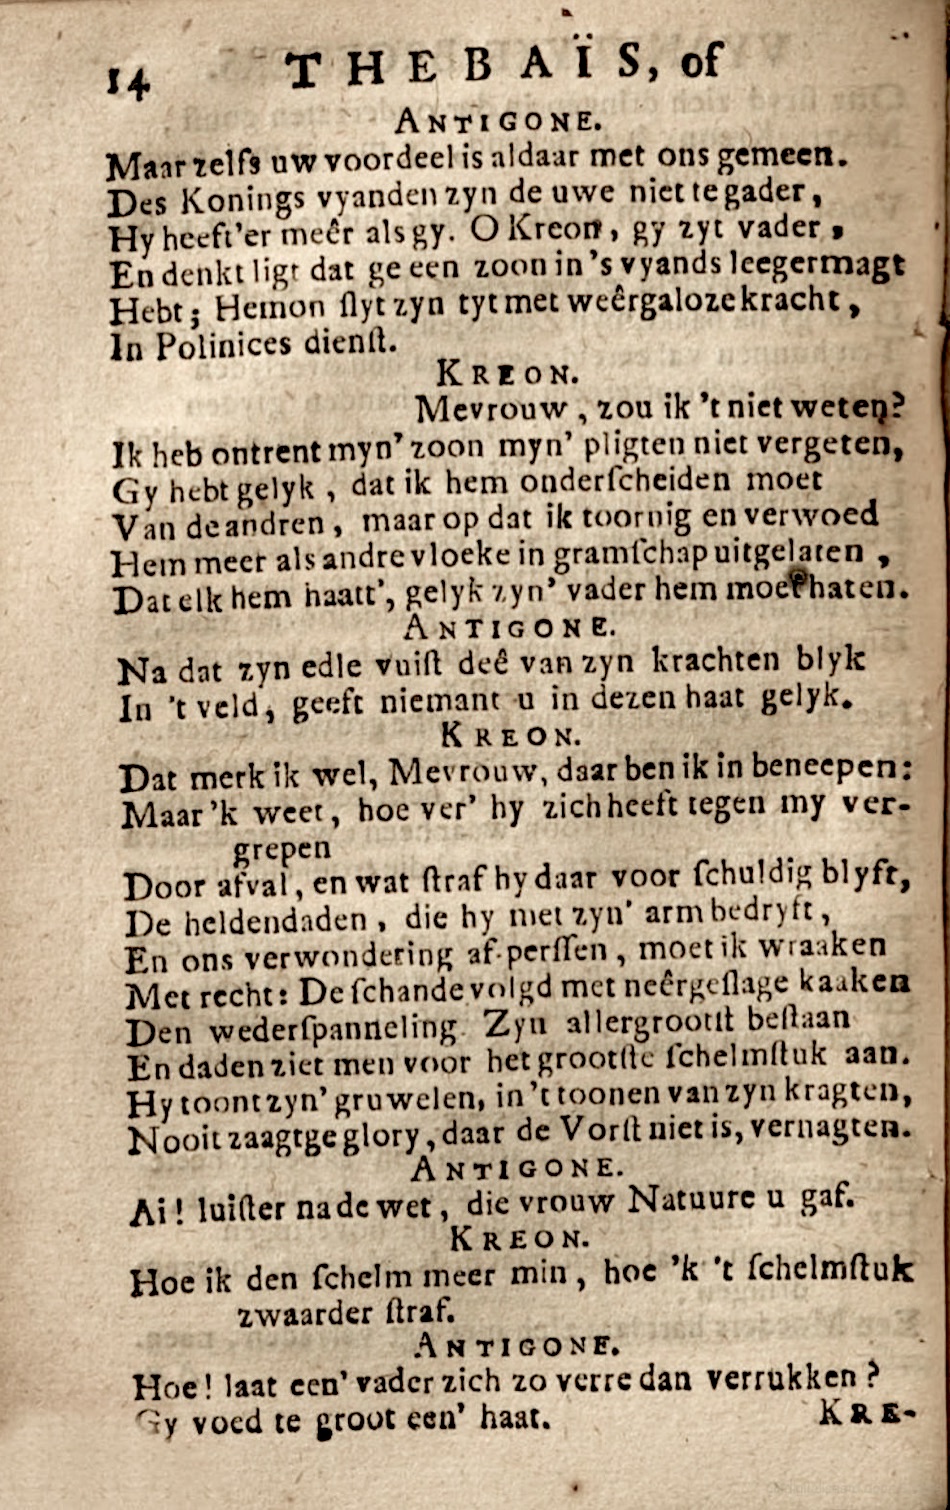 14 THEBAÏS, of
ANTIGONE.
Maar zelfs uw voordeel is aldaar met ons gemeen.
Des Konings vyanden zyn de uwe niet te gader,
Hy heeft'er meêr als gy. O Kreon, gy zyt vader,
En denkt ligt dat ge een zoon in 's vyands leegermagt
Hebt; Hemon ſlyt zyn tyt met weêrgaloze kracht,
In Polinices dienſt.
KREON.
Mevrouw, zou ik 't niet weten?
Ik heb ontrent myn' zoon myn' pligten niet vergeten,
Gy hebt gelyk, dat ik hem onderſcheiden moet
Van de andren, maar op dat ik toornig en verwoed
Hem meer als andre vloeke in gramſchap uitgelaten,
Dat elk hem haatt', gelyk zyn' vader hem moet haten.
ANTIGONE.
Na dat zyn edle vuiſt deê van zyn krachten blyk
In 't veld, geeft niemant u in dezen haat gelyk.
KREON.
Dat merk ik wel, Mevrouw, daar ben ik in beneepen:
Maar 'k weet, hoe ver' hy zich heeft tegen my ver-
grepen
Door afval, en wat ſtraf hy daar voor ſchuldig blyft,
De heldendaden, die hy met zyn' arm bedryft,
En ons verwondering af-perſſen, moet ik wraaken
Met recht: De ſchande volgd met neêrgeſlage kaaken
Den wederſpanneling. Zyn allergrootſt beſtaan
En daden ziet men voor het grootſte ſchelmſtuk aan.
Hy toont zyn' gruwelen, in 't toonen van zyn kragten,
Nooit zaagt ge glory, daar de Vorſt niet is, vernagten.
ANTIGONE.
Ai! luiſter na de wet, die vrouw Natuure u gaf.
KREON.
Hoe ik den ſchelm meer min, hoe 'k 't ſchelmſtuk
zwaarder ſtraf.
ANTIGONE.
Hoe! laat een' vader zich zo verre dan verrukken?
Gy voed te groot een' haat.
KRE-